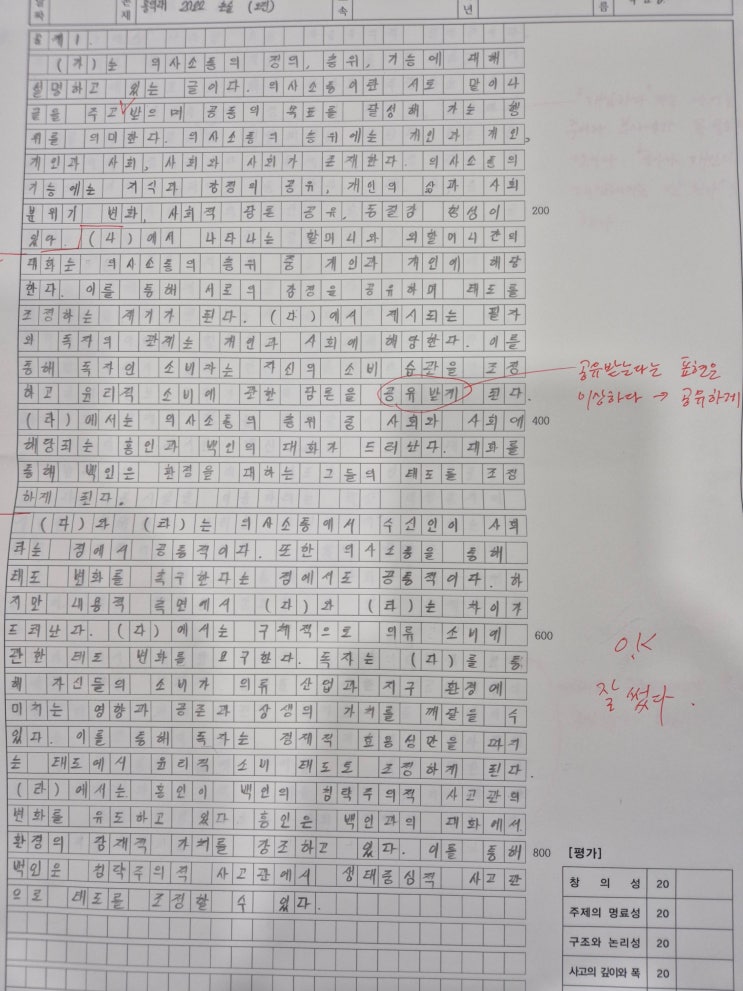 2022
년
문제 1.
(가)는 의사소통의 정의, 층위, 기능에 대해
설명하고 있는 글이다. 의사소통이란 서로 말이나
글을 주고 받으며 공동의 목표를 달성해 가는 행
위를 의미한다. 의사소통의 층위에는 개인과 개인,
개인과 사회, 사회와 사회가 존재한다. 의사소통의
기능에는 지식과 감정의 공유, 개인의 삶과 사회
분위기 변화, 사회적 담론 공유, 동질감 형성이
200
있다. (나)에서 나타나는 할머니와 외할머니 간의
대화는 의사소통의 층위 중 개인과 개인에 해당
한다. 이를 통해 서로의 감정을 공유하며 태도를
조정하는 계기가 된다. (다)에서 제시되는 필자
와 독자의 관계는 개인과 사회에 해당한다. 이를
통해 독자인 소비자는 자신의 소비 습관을 조정
하고 윤리적 소비에 관한 담론을 공유받게 된다.
공유받는다는 표현은
이상하다 → 공유하게
(라)에서는 의사소통의 층위 중 사회와 사회에
400
해당되는 홍인과 백인의 대화가 드러난다. 대화를
통해 백인은 환경을 대하는 그들의 태도를 조정
하게 된다.
(다)와 (라)는 의사소통에서 수신인이 사회
라는 점에서 공통적이다. 또한 의사소통을 통해
태도 변화를 촉구한다는 점에서도 공통적이다. 하
지만 내용적 측면에서 (다)와 (라)는 차이가
드러난다. (다)에서는 구체적으로 의류 소비에
600
관한 태도 변화를 요구한다. 독자는 (다)를 통
해 자신들의 소비가 의류 산업과 지구 환경에
미치는 영향과 공존과 상생의 가치를 깨달을 수
있다. 이를 통해 독자는 경제적 효용성만을 따지
는 태도에서 윤리적 소비 태도로 조정하게 된다.
(라)에서는 홍인이 백인의 침략주의적 사고관의
변화를 유도하고 있다 홍인은 백인과의 대화에서
환경의 잠재적 가치를 강조하고 있다. 이를 통해
800
백인은 침략주의적 사고관에서 생태중심적 사고관
으로 태도를 조정할 수 있다.
O.K
잘 썼다.
[평가]
창 의 성 20
주제의 명료성 20
구조와 논리성 20
사고의 깊이와 폭 20